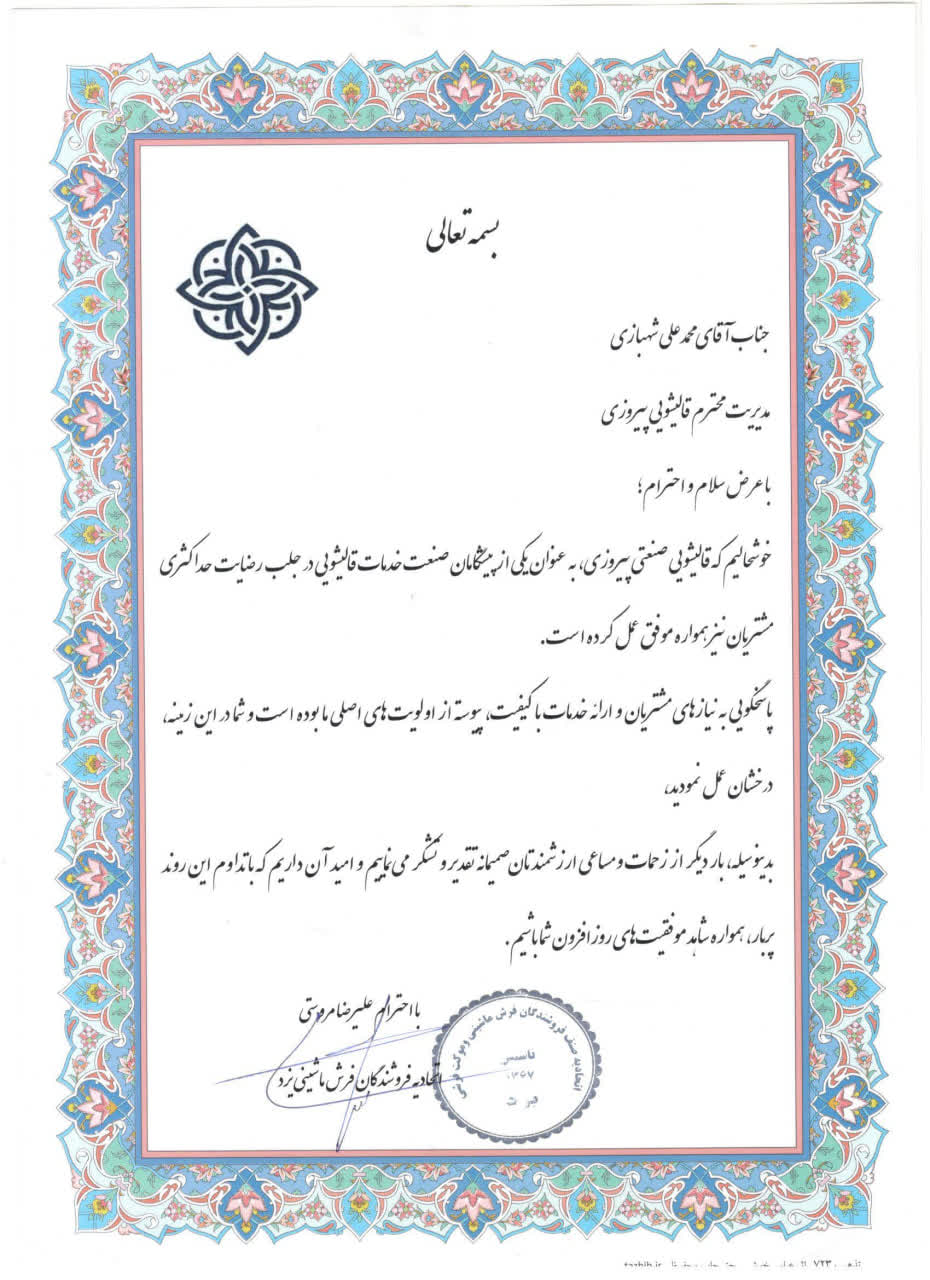 بسمه تعالی
جناب آقای محمد علی شهبازی
مدیریت محترم قالیشویی پیروزی
با عرض سلام و احترام؛
خوشحالیم که قالیشویی صنعتی پیروزی، به عنوان یکی از پیشگامان صنعت خدمات قالیشویی در جلب رضایت حداکثری
مشتریان نیز همواره موفق عمل کرده است.
پاسخگویی به نیازهای مشتریان و ارائه خدمات با کیفیت، پیوسته از اولویت های اصلی ما بوده است و شما در این زمینه،
درخشان عمل نمودید،
بدینوسیله، بار دیگر از زحمات و مساعی ارزشمندتان صمیمانه تقدیر و تشکر می نماییم و امید آن داریم که با تداوم این روند
پربار، همواره شاهد موفقیت های روز افزون شما باشیم.
با احترام علیرضا مروستی
اتحادیه فروشندگان فرش ماشینی یزد
اتحادیه صنف فروشندگان فرش ماشینی و موکت
تاسیس
۱۳۶۷